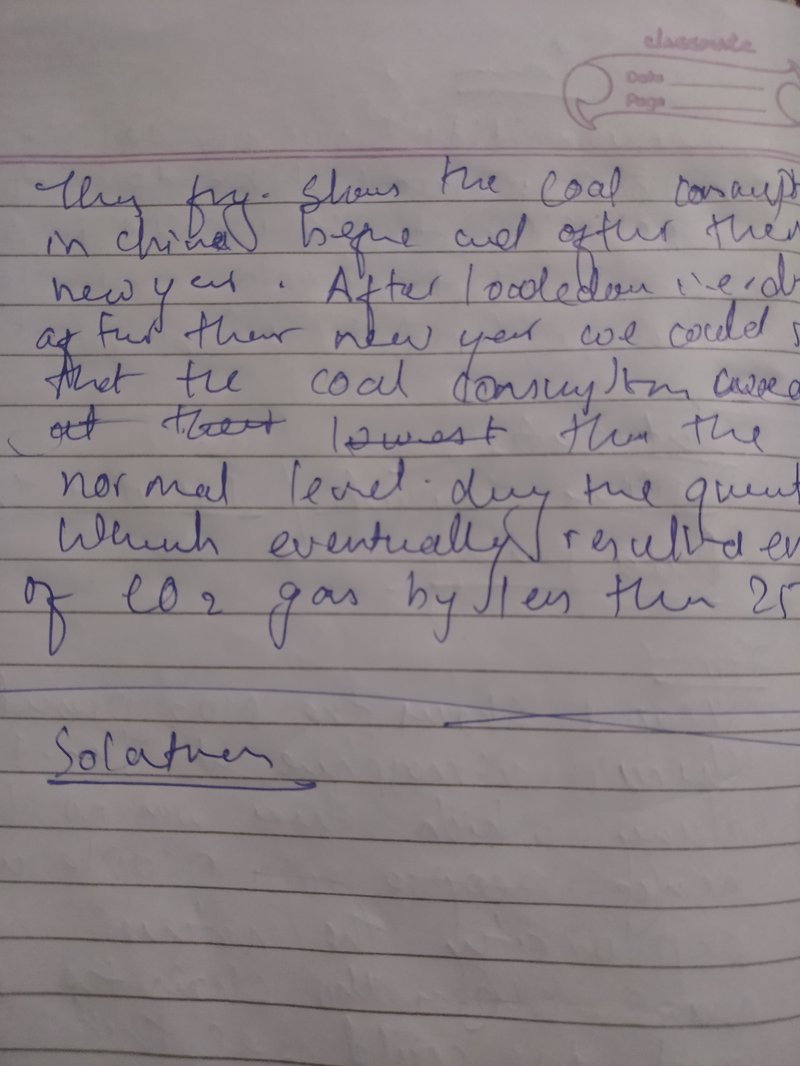 classmate
Date
Page
This fig. shows the coal consumpt
in china before and after their
new year. After lockdown i.e.
after their new year we could s
that the coal consumption
at their lowest than the
normal level. the
Which eventually resulted
of CO2 gas by less than 25
Solution